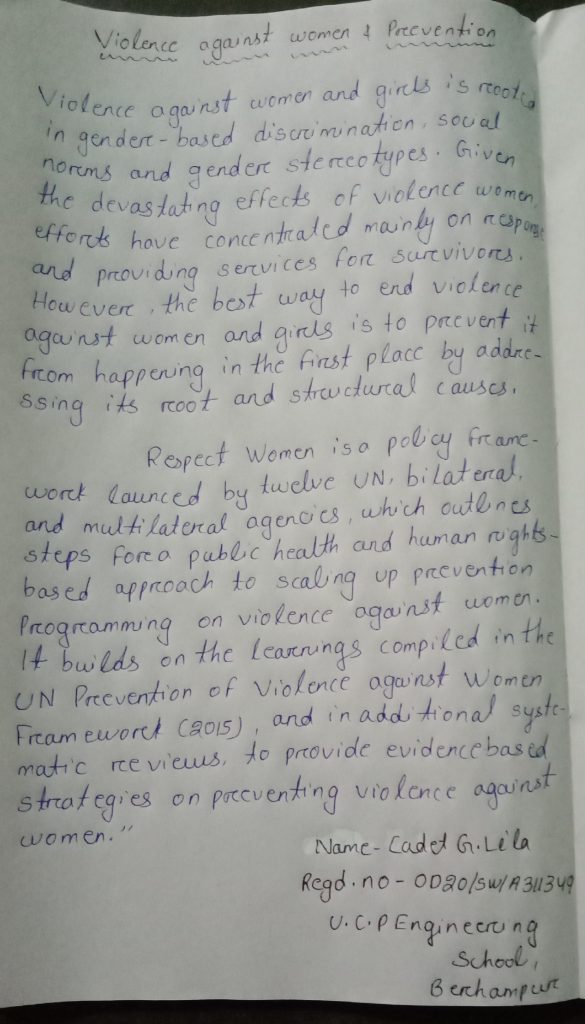 Violence against women & Prevention
Violence against women and girls is rooted
in gender-based discrimination, social
norms and gender stereotypes. Given
the devastating effects of violence women,
efforts have concentrated mainly on response
and providing services for survivors.
However, the best way to end violence
against women and girls is to prevent it
from happening in the first place by addre-
ssing its root and structural causes.
Respect Women is a policy frame-
work launced by twelve UN, bilateral,
and multilateral agencies, which outlines
steps for a public health and human rights-
based approach to scaling up prevention
Programming on violence against women.
It builds on the learnings compiled in the
UN Prevention of Violence against Women
Framework (2015), and in additional syste-
matic reviews, to provide evidence based
strategies on preventing violence against
women."
Name - Cadet G. Lila
Regd. no - OD20/SW/A311349
U.C.P Engineering
School,
Berhampur